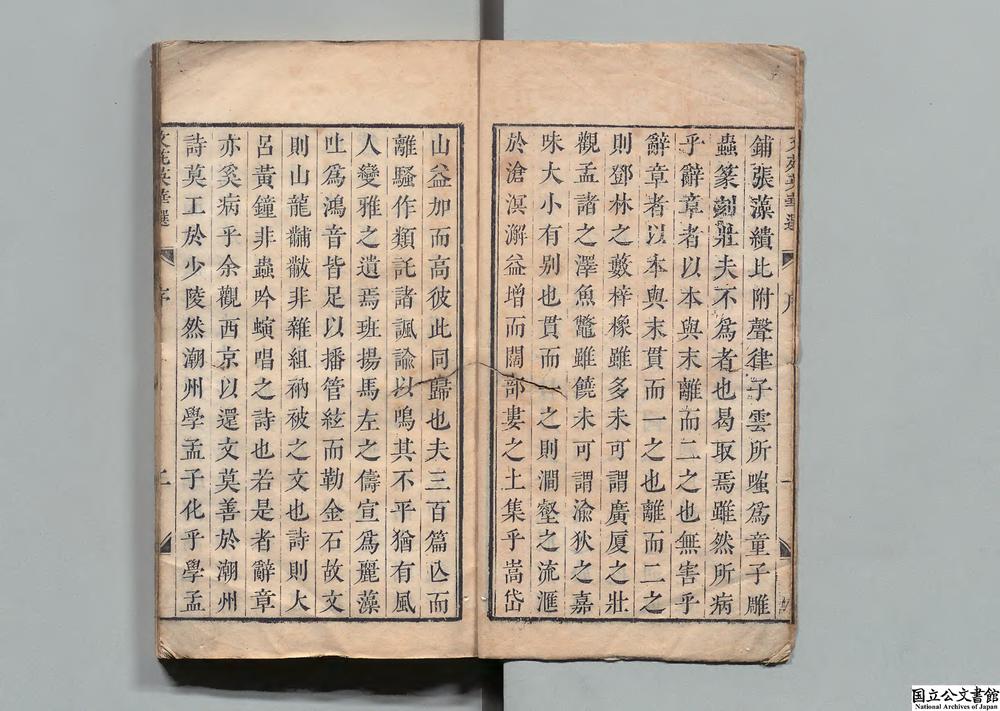 鋪張藻繢此附聲律子雲所嗤爲童子雕
蟲篆刻壯夫不爲者也曷取焉雖然所病
乎辭章者以本與末離而二之也無害乎
辭章者以本與末貫而一之也離而二之
則鄧林之藪梓橡雖多未可謂廣厦之壯
觀孟諸之澤魚鼈雖饒未可謂渝狄之嘉
味大小有别也貫而一之則澗壑之流滙
於滄溟澥益增而闊部婁之土集乎嵩岱
山益加而高彼此同歸也夫三百篇亾而
離騷作類託諸諷諭以鳴其不平猶有風
人變雅之遺焉班揚馬左之儔宣爲麗藻
吐爲鴻音皆足以播管絃而勒金石故文
則山龍黼黻非雜組衲被之文也詩則大
呂黃鐘非蟲吟螾唱之詩也若是者辭章
亦奚病乎余觀西京以還文莫善於潮州
詩莫工於少陵然潮州學孟子化乎學孟
文苑英華選
序
二
国立公文書館
National Archives of Japan